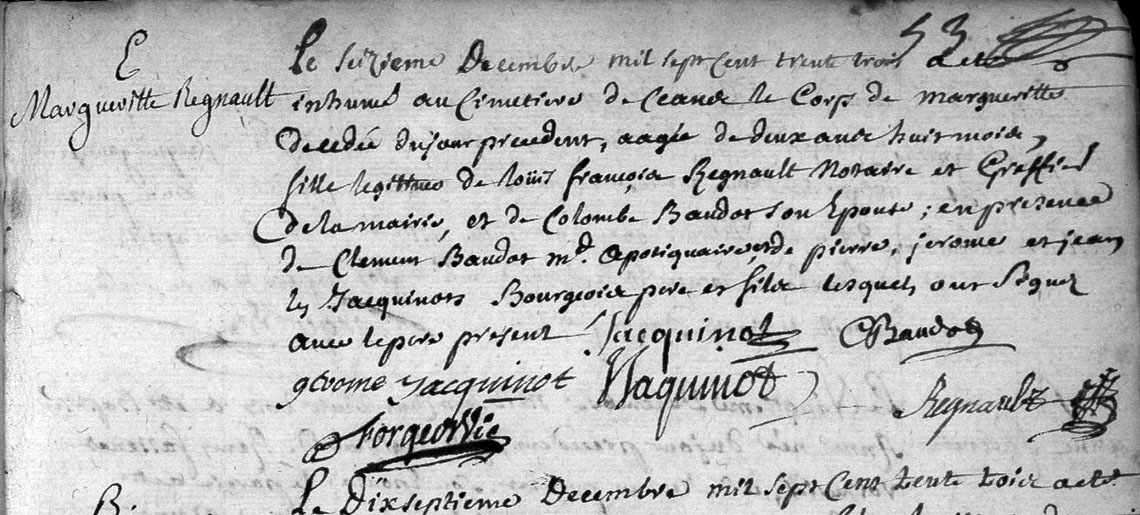 53
E
Margueritte Regnault
Le seizieme Decembre mil sept Cent trente trois a eté
inhumé au Cimetiere de Ceans le Corps de margueritte
decedée du jour precedent, aagée de deux ans huit mois,
fille legitime de loüis françois Regnault Notaire et Greffier
de la mairie, et de Colombe Baudot son Epouse ; en presence
de Clement Baudot md. apotiquaire, et de pierre, jerome et jean
les Jacquinots Bourgeois pere et fils lesquels ont Signez
avec le pere present Jacquinot CBaudot
gerome Jacquinot Jaquinot
Regnault
Le Dixseptieme Decembre mil sept Cent trente trois a eté
B.